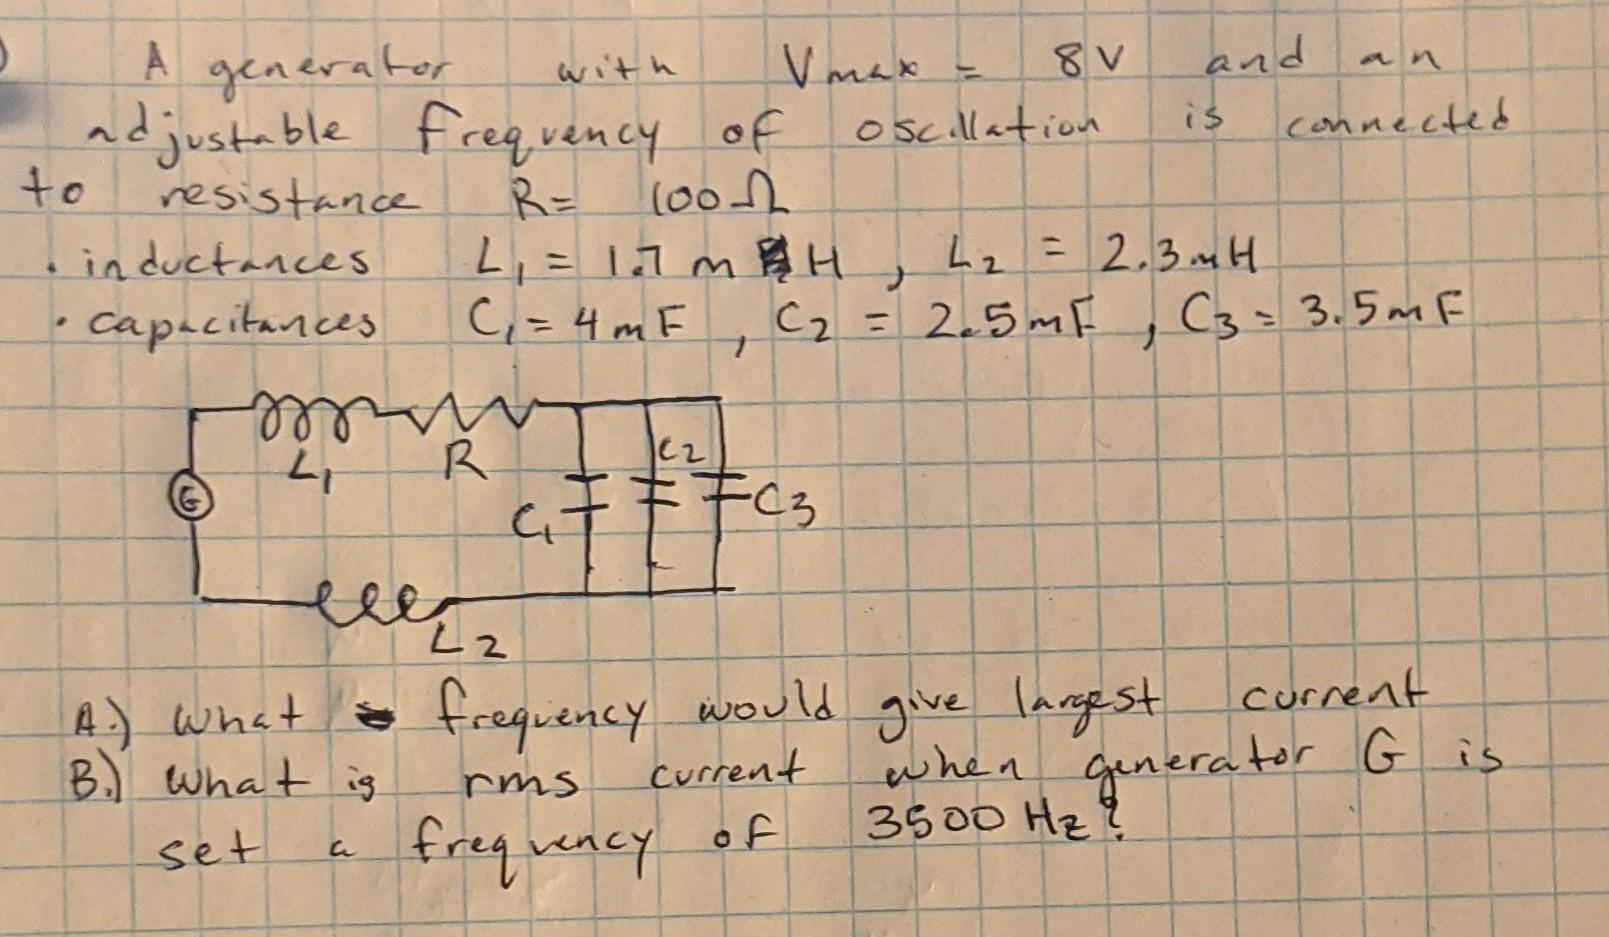 A generator with Vmax = 8V and an
adjustable frequency of oscillation is connected
to resistance R= 100Ω
· inductances L₁ = 1.7 m H , L₂ = 2.3 mH
· capacitances C₁ = 4 mF , C₂ = 2.5 mF , C₃ = 3.5 mF
L₁ R C2
G C₁ C3
L2
A.) What frequency would give largest current
B.) What is rms current when generator G is
set a frequency of 3500 Hz?